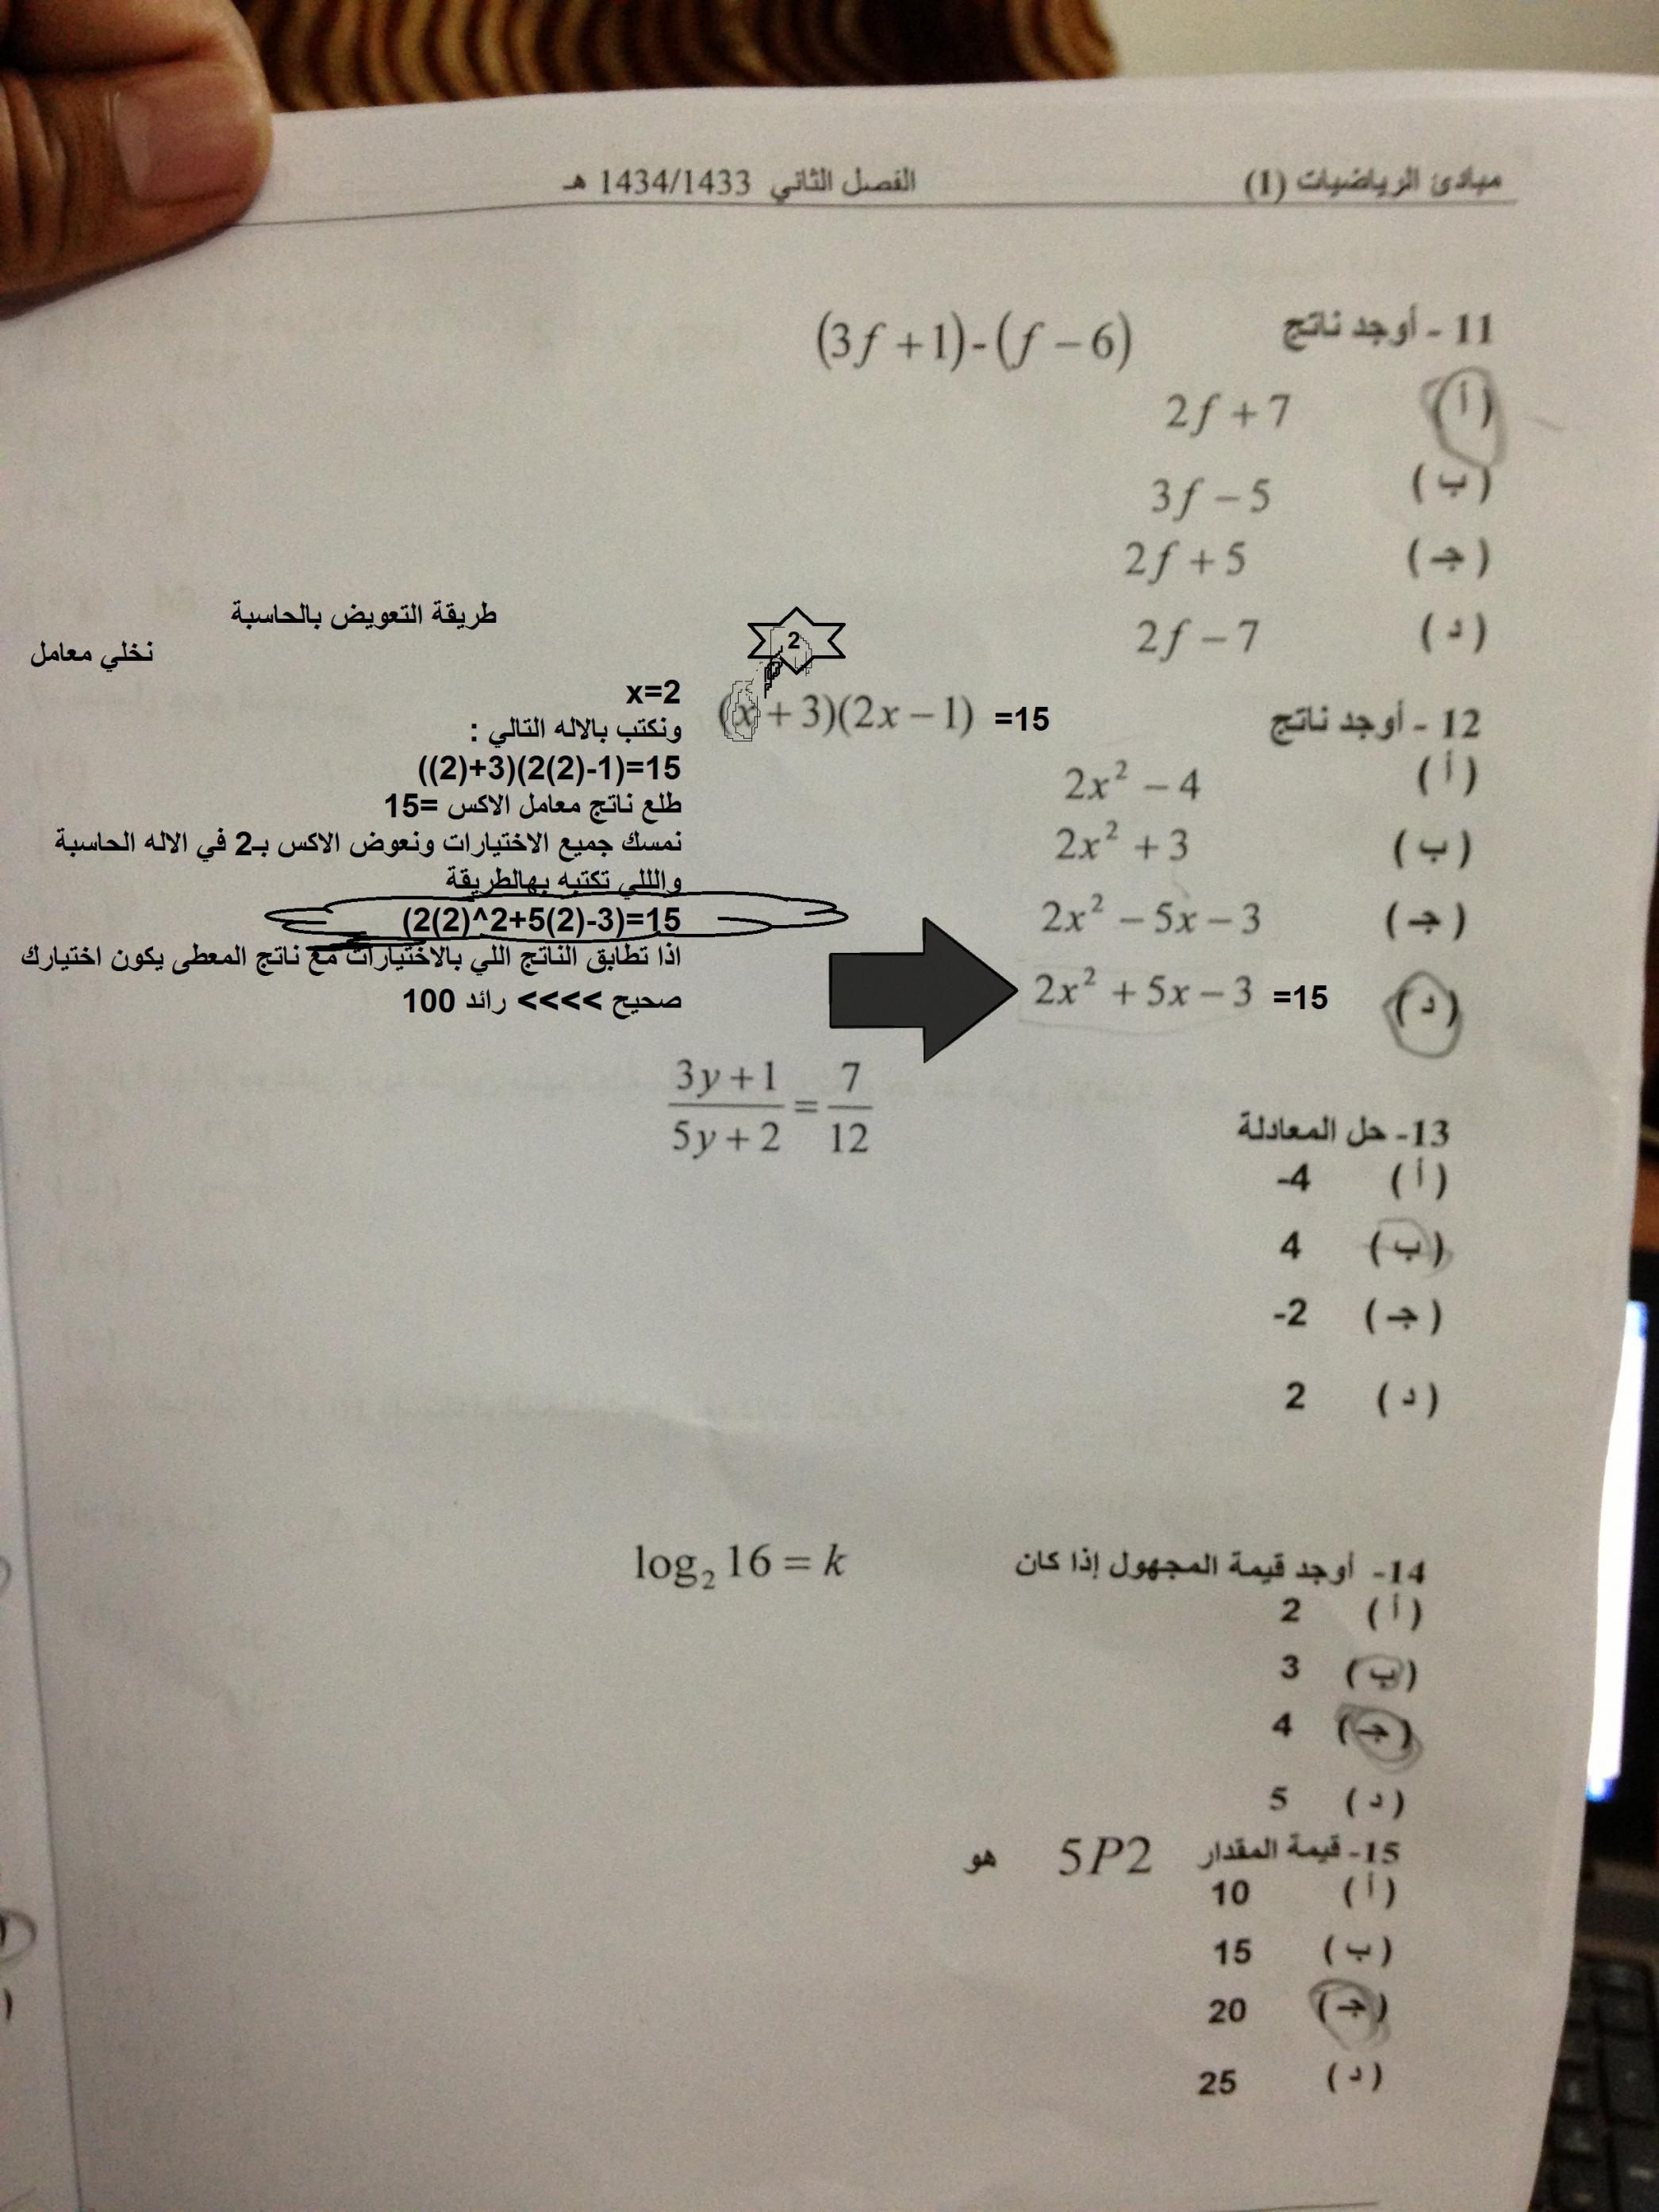 مبادئ الرياضيات (1) الفصل الثاني 1434/1433 هـ
11 - أوجد ناتج (3f + 1) - (f − 6)
(أ) 2f + 7
(ب) 3f − 5
(جـ) 2f + 5
(د) 2f − 7
طريقة التعويض بالحاسبة
نخلي معامل
x=2
ونكتب بالاله التالي :
((2)+3)(2(2)-1)=15
طلع ناتج معامل الاكس =15
نمسك جميع الاختيارات ونعوض الاكس بـ2 في الاله الحاسبة
والللي تكتبه بهالطريقة
(2(2)^2+5(2)-3)=15
اذا تطابق الناتج اللي بالاختيارات مع ناتج المعطى يكون اختيارك
صحيح >>>> رائد 100
2
12 - أوجد ناتج (x + 3)(2x − 1) =15
(أ) 2x² − 4
(ب) 2x² + 3
(جـ) 2x² − 5x − 3
(د) 2x² + 5x − 3 =15
13- حل المعادلة (3y + 1)/(5y + 2) = 7/12
(أ) -4
(ب) 4
(جـ) -2
(د) 2
14- أوجد قيمة المجهول إذا كان log₂ 16 = k
(أ) 2
(ب) 3
(جـ) 4
(د) 5
15- قيمة المقدار 5P2 هو
(أ) 10
(ب) 15
(جـ) 20
(د) 25